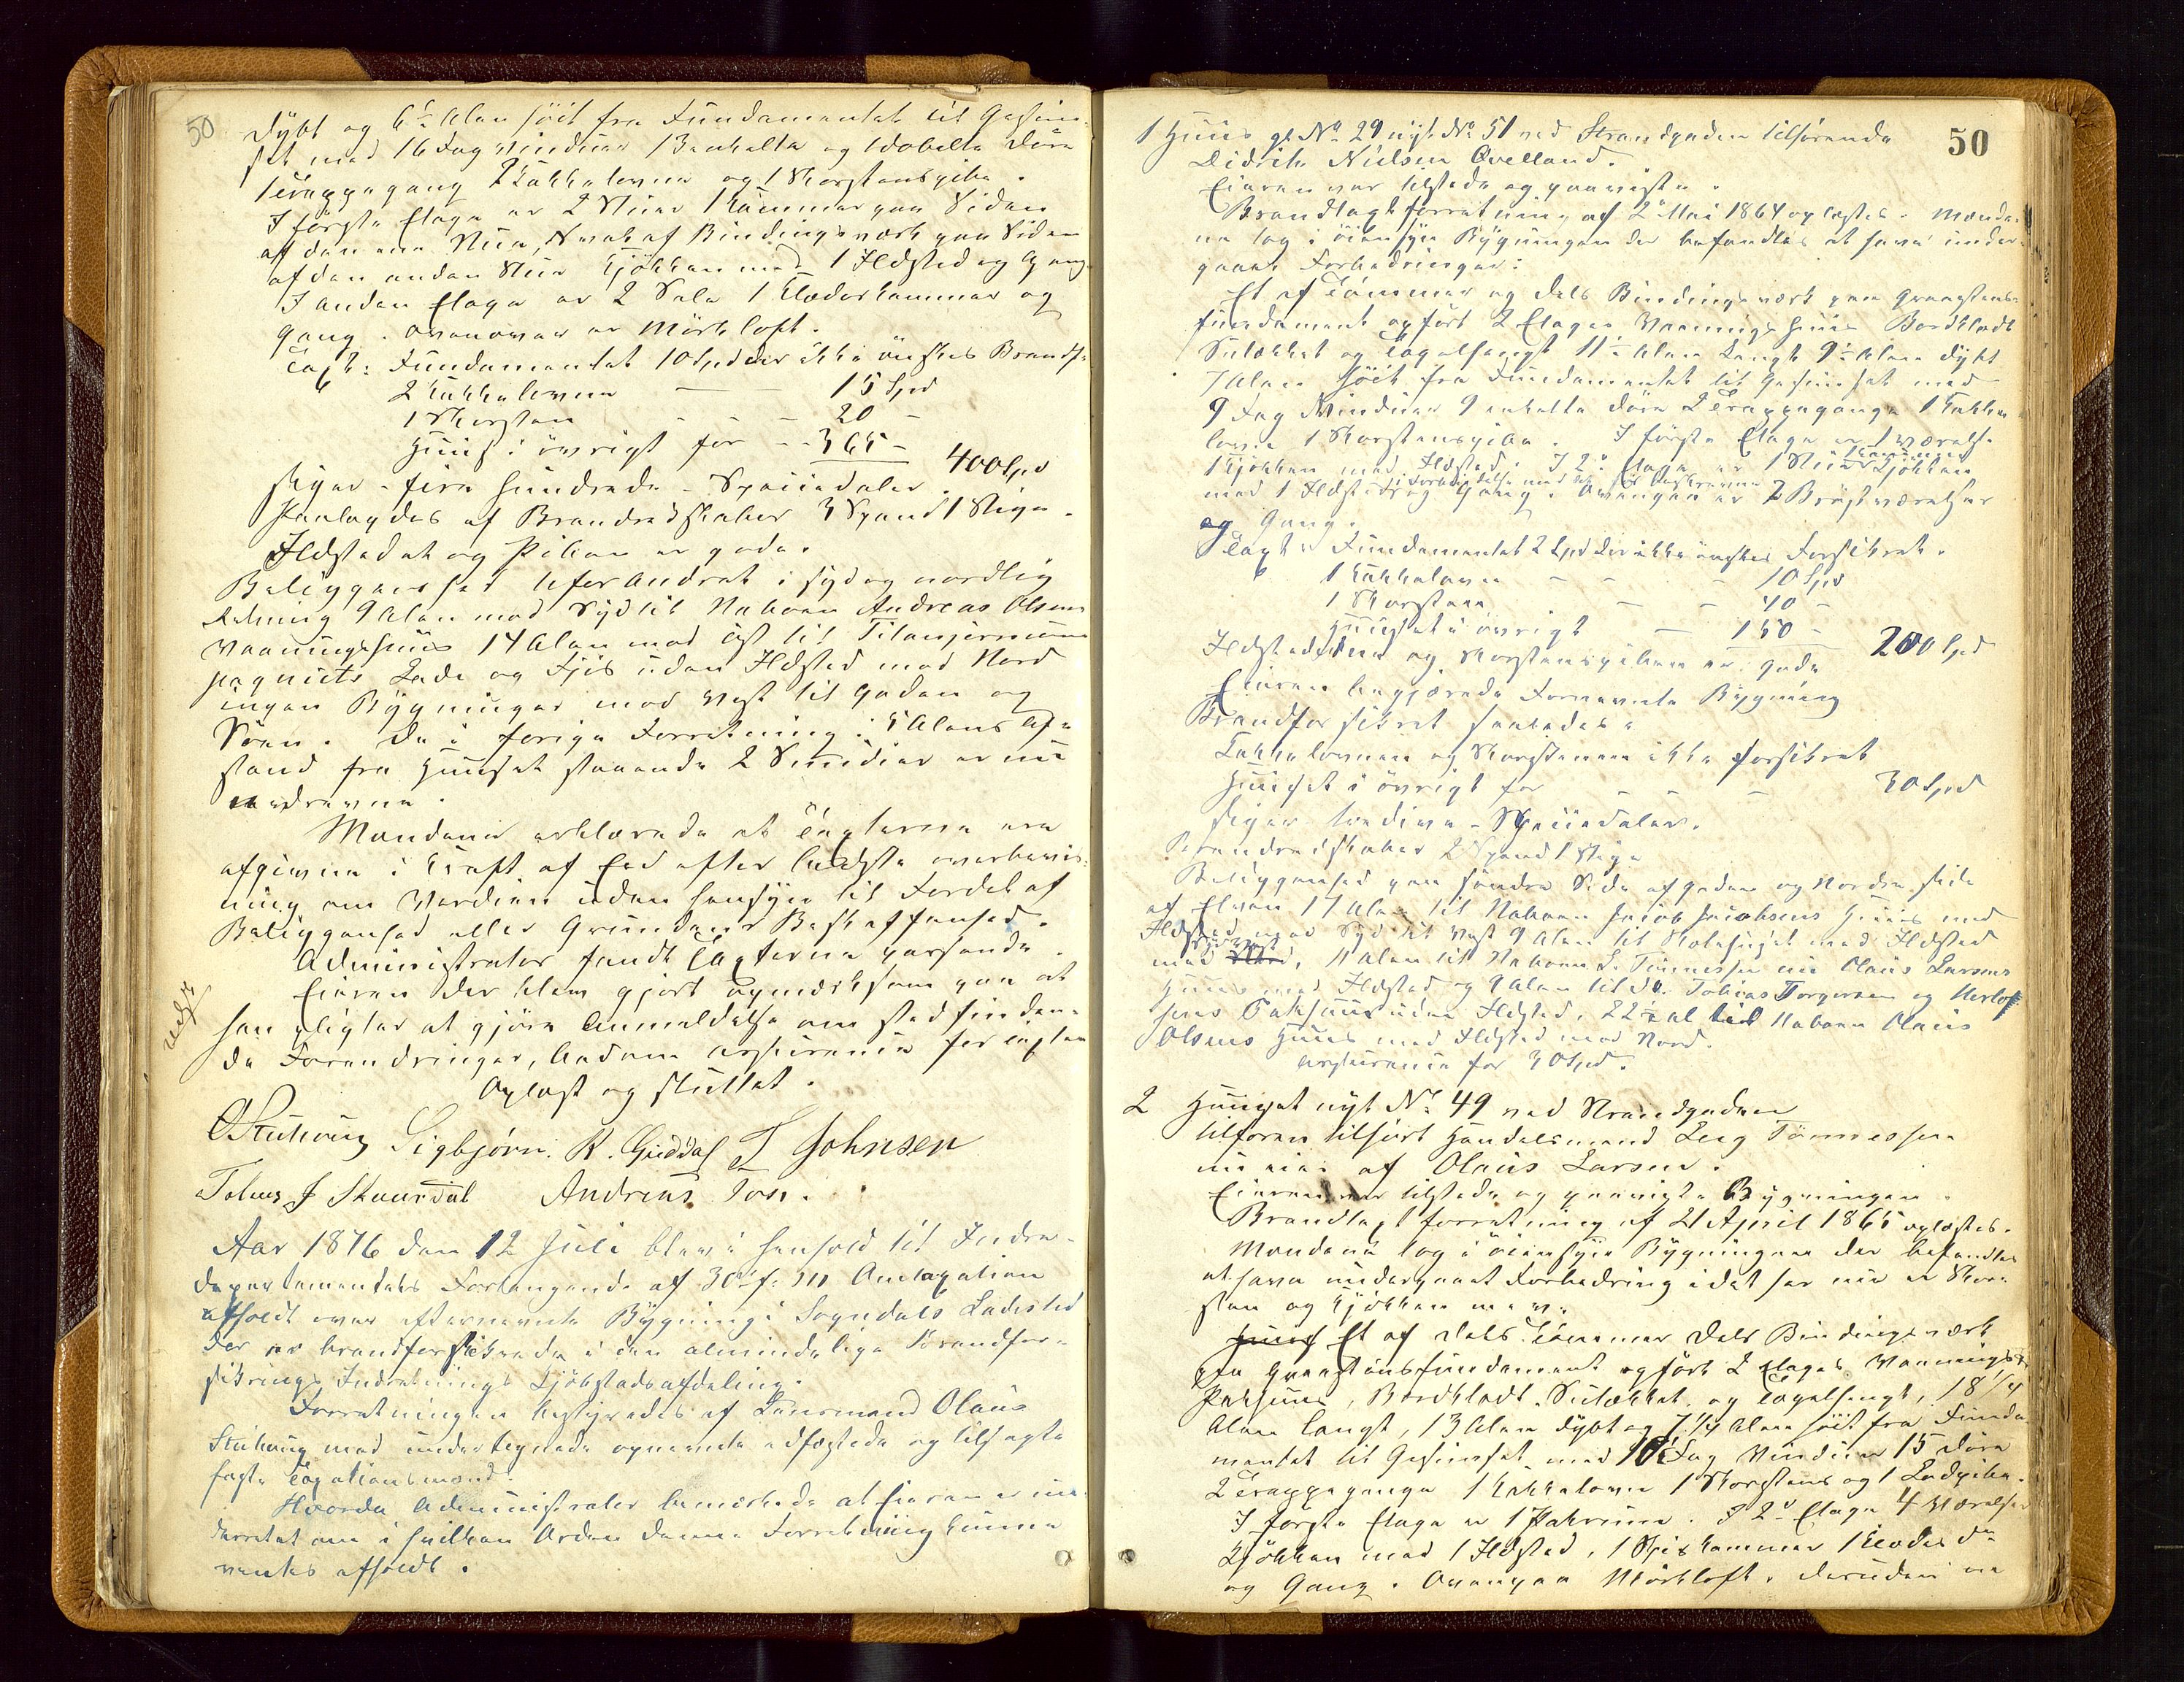 50
Dybt og 6½ Alen höit fra Fundamentet til Gesim-
set med 16 Fag Vinduer 13 enkelte og 1 dobelte Döre
1 Trappegang 2 Kakkelovne og 1 Skorstenspibe.
I förste Etage er 2 Stuer 1 Kammer paa Siden
af den ene Stue, Svale af Bindingsværk paa Siden
af den anden Stue Kjökken med 1 Ildsted og Gang
I anden Etage er 2 Sale 1 Klædeskammer og
Gang. Ovenover er Mörkloft.
Taxt: Fundamentet 10 Spd der ikke önskes Brandf.
2 Kakkelovne — 15 Spd
1 Skorsten - - - 20 -
Huuset i övrigt for - - 365 - 400 Spd
siger - fire hundrede - Speciedaler.
Paalagdes af Brandredskaber 3 Spand 1 Stige.
Ildstedet og Piben er gode.
Beliggenhed uforandret i syd og nordlig
Retning 9 Alen mod Syd til Naboen Andreas Olsens
Vaaningshuus 14 Alen mod Öst til Titanjernkom-
pagniets Lade og Fjös uden Ildsted mod Nord
ingen Bygninger mod Vest til Gaden og
Söen. De i forige Forretning i 5 Alens Af-
stand fra Huuset staaende 2 Smidier er nu
nedrevne.
Mændene erklærede at Taxterne ere
afgivne i Kraft af Eed efter bedste overbevis-
ning om Værdien uden hensyn til Fordel af
Beliggenhed eller Grundens Beskaffenhed.
Administrator fandt Taxterne passende.
Eieren der blev gjort opmærksom paa at
han pligter at gjöre Anmeldelse om stedfinden-
de Forandringer, bedömt Assurance for Taxten
Oplæst og sluttet.
O Stuhoug Sigbjørn R. Grøddal T Johnsen
Tobias J Skaardal Andreas Toss.
Aar 1876 den 12 Juli blev i henhold til Indre-
departementets Forlangende af 30te f: M Omtaxation
afholdt over efternævnte Bygning i Sogndals Ladested
der er brandforsikrede i den almindelige Brandfor-
sikrings Indretnings Kjöbstadsafdeling.
Forretningen bestyredes af Lensmand Olaus
Stuhoug med undertegnede opnævnte edfæstede og tilsagte
faste Taxationsmænd.
Hvorda Administrator bemærkede at Eieren er un-
derrettet om i hvilken Orden denne Forretning kunne
ventes afholdt.
50
1 Huus gl. No 29 nyt No 51 ved Strandgaden tilhörende
Didrik Nielsen Qvelland.
Eieren var tilstede og paaviste.
Brandtaxtforretning af 2 Mai 1864 oplæstes. Mænde-
ne tog i öiensyn Bygningen der befandtes at have under-
gaaet Forbedringer:
Et af Tömmer og dels Bindingsværk paa Graastens-
fundament opfört 2 Etages Vaaningshuus Bordklædt
Sutækket og Tagelhængt 11½ Alen Langt 9½ Alen dybt
7 Alen höit fra Fundamentet til Gesimset med
9 Fag Vinduer 9 enkelte Döre 2 Trappegange 1 Kakke-
lovn 1 Skorstenspibe. I förste Etage er 1 Værelse
1 Kjökken med Ildsted. I 2den Etage er 1 Stue 1 Kammer Kjökken
med 1 Ildsted og Gang. Ovenpaa er 2 Bröstværelser
og Gang.
Taxt: Fundamentet 2 Spd der ikke önskes Forsikret.
1 Kakkelovn - - - 10 Spd
1 Skorsten - - 40 -
Huuset i övrigt — 150 - 200 Spd
Ildstederne og Skorstenspiben er gode
Eieren begjærede Fornævnte Bygning
Brandforsikret saaledes:
Kakkelovnen og Skorstenen ikke forsikret
Huuset i övrigt for - - - 30 Spd
siger tredive - Speciedaler.
Brandredskaber 2 Spand 1 Stige
Beliggenhed paa söndre Side af Gaden og Nordre side
af Elven 17 Alen til Naboen Jacob Jacobsens Huus med
Ildsted mod Syd til Vest 9 Alen til Skolehuset med Ildsted
mod Sydvest, 11 Alen til Naboen L. Tönnessen nu Olaus Larsens
Huus med Ildsted og 9 Alen til do. Tobias Torgersen og Herlof-
sens Pakhuus uden Ildsted, 22½ al til Naboen Olaus
Olsens Huus med Ildsted mod Nord.
Assurance for 30 Spd.
2 Huuset nyt No 49 ved Strandgaden
tilforen tilhört Handelsmand Leeg Tönnessen
nu eies af Olaus Larsen.
Eieren var tilstede og paaviste Bygningen.
Brandtaxtforretning af 21 April 1865 oplæstes.
Mændene tog i öiensyn Bygningen der befandtes
at have undergaaet Forbedring idet her nu er Skor-
sten og Kjökken m. v.
Et af dels Tömmer dels Bindingsværk
paa Graastensfundament opfört 2 Etages Vaanings-
Pakhuus, Bordklædt Sutækket og Tagelhængt, 18 1/4
Alen Langt, 13 Alen dybt og 7 1/4 Alen höit fra Funda-
mentet til Gesimset med 10 Fag Vinduer 15 Döre
2 Trappegange 1 Kakkelovn 1 Skorstens og 1 Ludpibe.
I förste Etage er 1 Pakrum. I 2den Etage 4 Værelser
Kjökken med 1 Ildsted, 1 Spiskammer 1 Klædes do
og Gang. Ovenpaa Mörkloft. desuden en